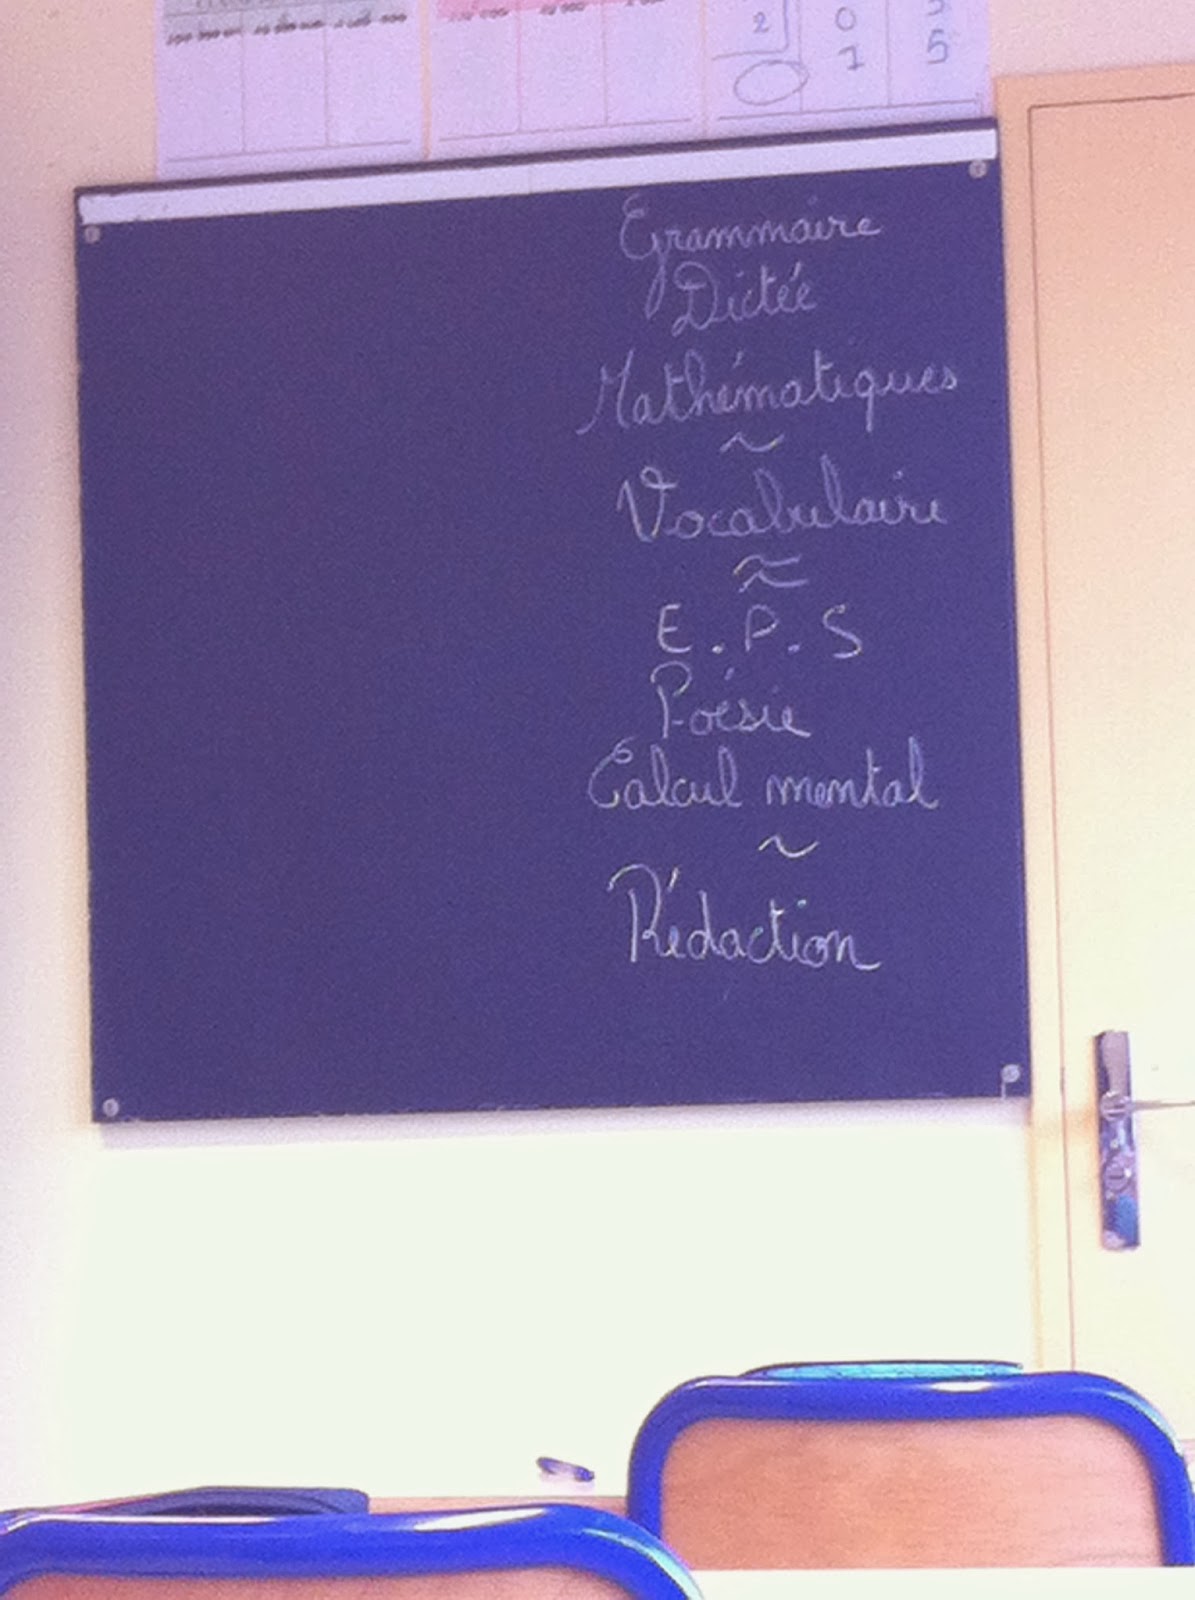 2 0
7 5
Grammaire
Dictée
Mathématiques
~
Vocabulaire
≈
E.P.S
Poésie
Calcul mental
~
Rédaction